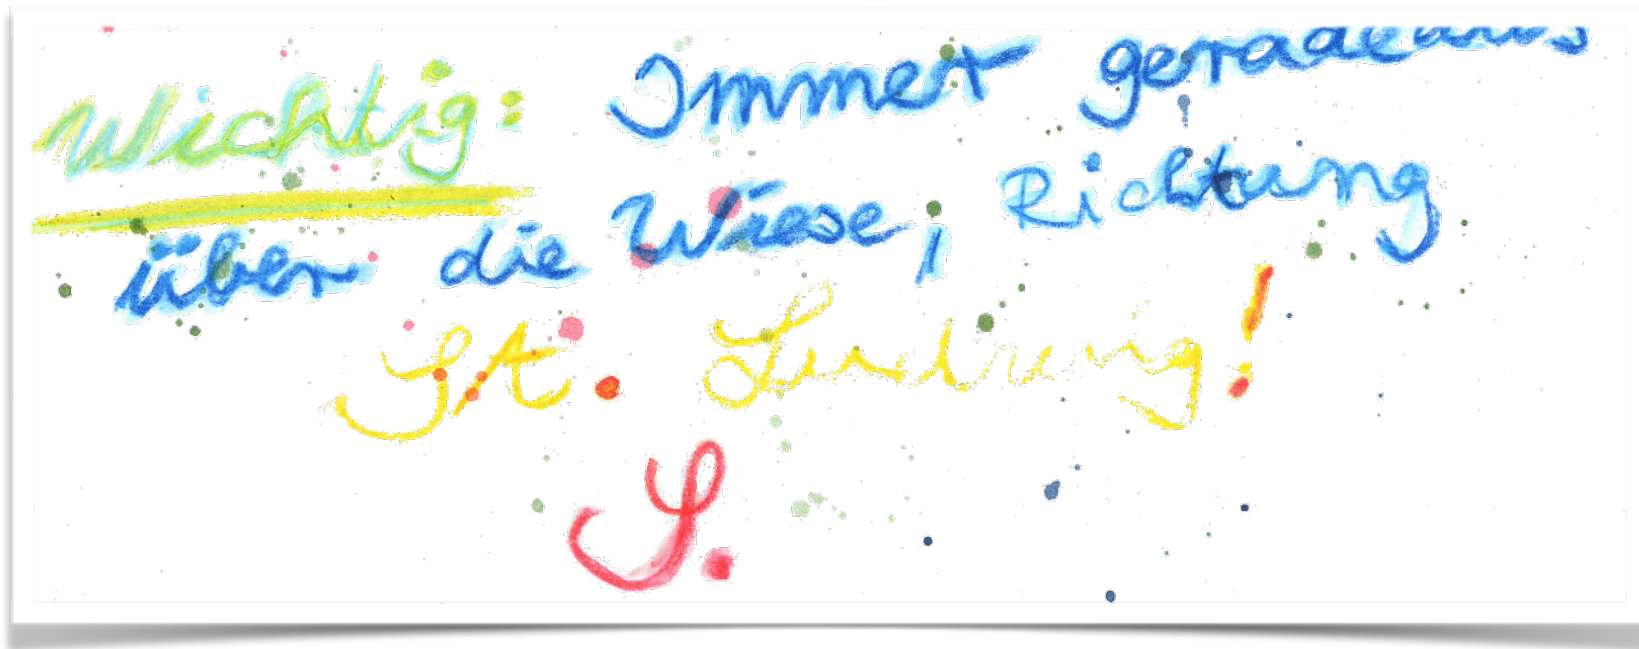 Wichtig: Immer geradeaus
über die Wiese, Richtung
St.
S.